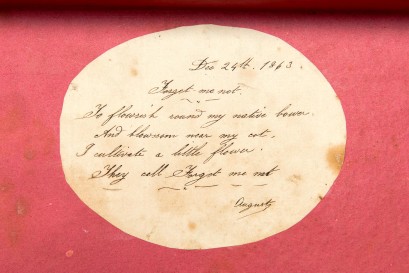 Dec 24th. 1863.
Forget me not.
To flourish round my native bower.
And blossom near my cot,
I cultivate a little flower.
They call Forget me not
Augusty